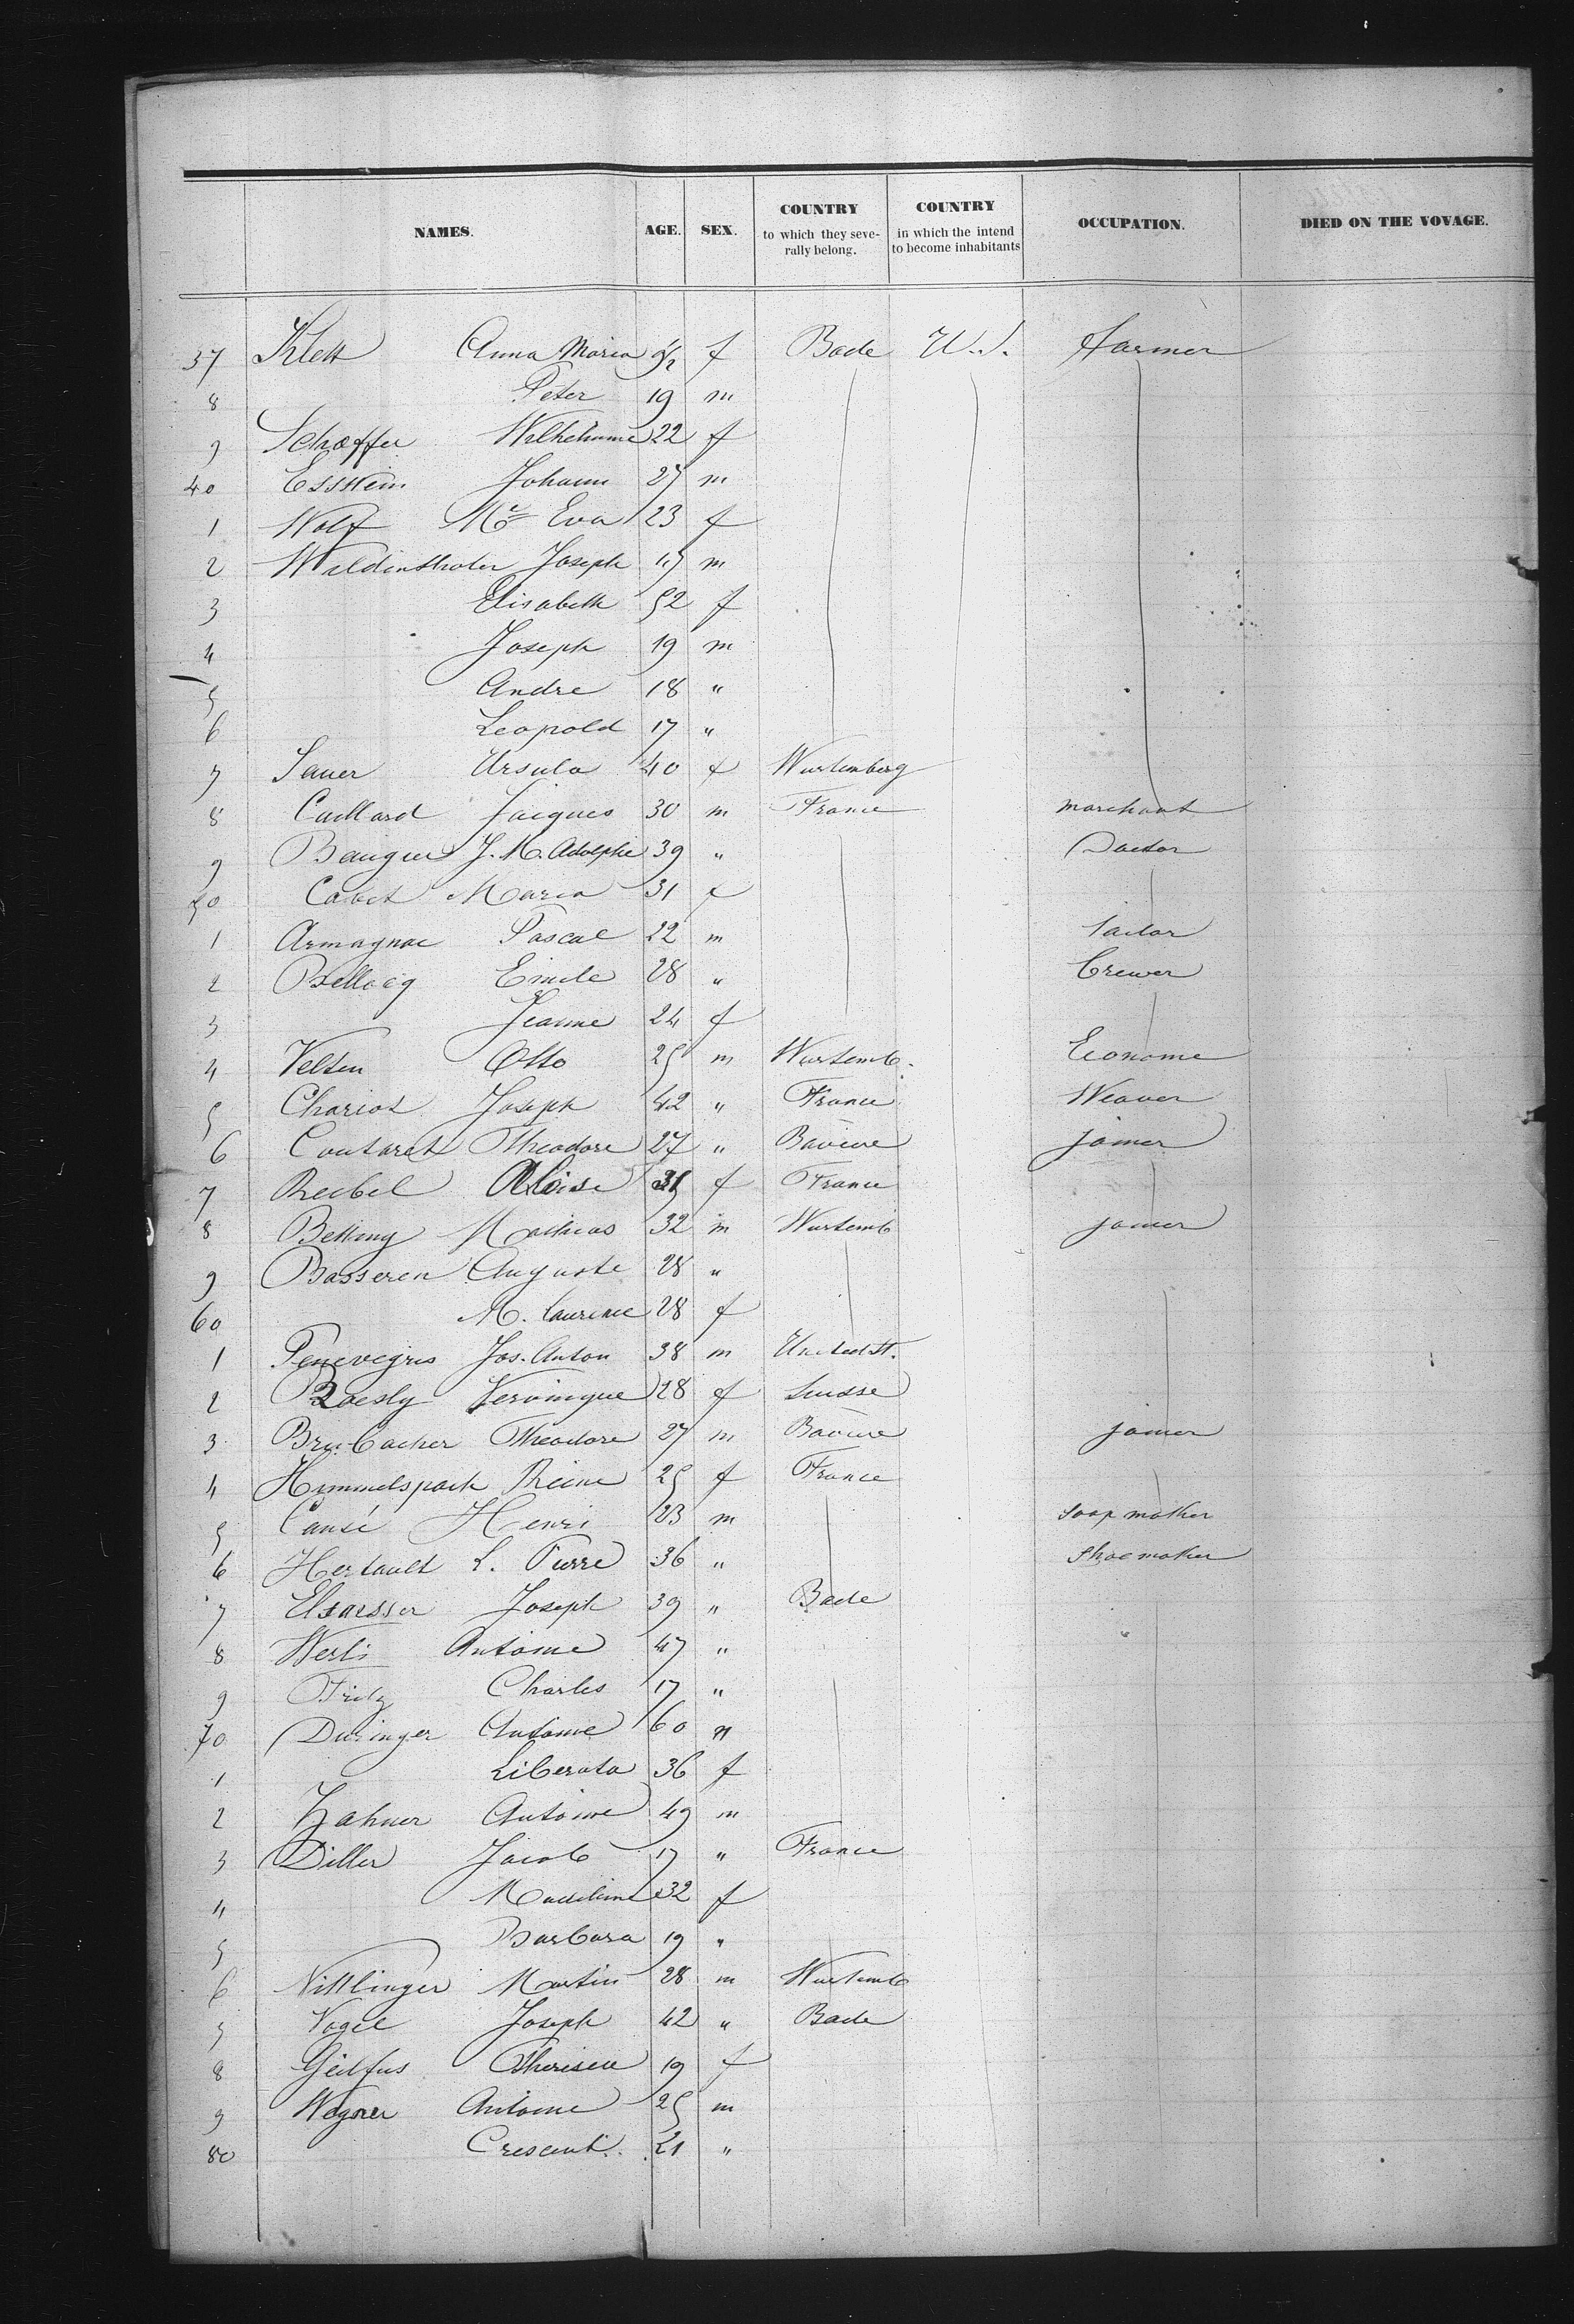 NAMES. AGE. SEX. COUNTRY to which they severally belong. COUNTRY in which the intend to become inhabitants OCCUPATION. DIED ON THE VOVAGE.
37 Klett Anna Maria f Bade U.S. farmer
8 Peter 19 m
9 Schaeffer Wilhelmine 22 f
40 Johann 27 m
1 Wolf Eva 23 f
2 Joseph m
3 Elisabeth 52 f
4 Joseph 19 m
5 Andre 18 "
6 Leopold 17 "
7 Sauer Ursula 40 f Wurtemberg
8 Caillard Jacques 30 m France marchant
9 J. M. Adolphe 39 " Doctor
50 Cabet Maria 31 f
1 Armagnac Pascal 22 m Tailor
2 Bellocq Emile 28 " Brewer
3 Jeanne 24 f
4 Velten Otto 25 m Wurtemb. Econome
5 Chariot Joseph 42 " France Weaver
6 Coutaret Theodore 27 " Baviere joiner
7 Reibel f France
8 Bettiny Mathias 32 m Wurtemb joiner
9 Basseren Auguste 28 "
60 M. Laurence 28 f
1 Jos. Anton 38 m United St.
2 Veronique 28 f Suisse
3 Brubacher Theodore 27 m Baviere joiner
4 Himmelspach Reine 25 f France
5 Causé Henri 23 m soap maker
6 Hertault L. Pierre 36 " shoemaker
7 Elsaesser Joseph 39 " Bade
8 Werli Antoine 47 "
9 Fritz Charles 17 "
70 Duringer Antoine 60 "
1 Liberata 36 f
2 Zahner Antoine 49 m
3 Diller Jacob 17 " France
4 Madeleine 32 f
5 Barbara 19 "
6 Nittlinger Martin 28 m Wurtemb
7 Vogel Joseph 42 " Bade
8 Geilfus Theresen 19 f
9 Wagner Antoine 25 m
80 Crescent. 21 "